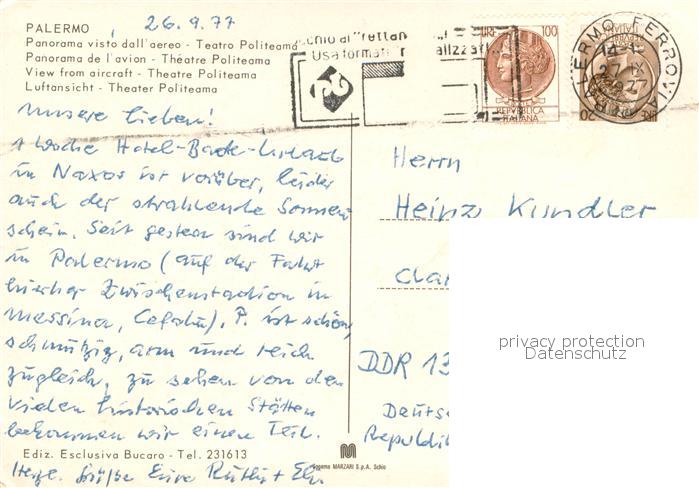 26.9.77
PALERMO
Panorama visto dall'aereo - Teatro Politeama
Panorama de l'avion - Théatre Politeama
View from aircraft - Theatre Politeama
Luftansicht - Theater Politeama
Usa formati
LIRE 100
REPVBBLICA
ITALIANA
PALERMO FERROVIA
Unsere Lieben!
1 Woche Hotel-Bade-Urlaub
in Naxos ist vorüber, leider
auch der strahlende Sonnen
schein. Seit gestern sind wir
in Palermo (auf der Fahrt
hierher Zwischenstation in
Messina, Cefalu). P. ist schön,
schmutzig, arm und reich
zugleich, zu sehen von den
vielen historischen Stätten
bekommen wir einen Teil.
Herzl. Grüße Eure Ruth +
Herrn
Heinz Kundler
DDR 13
privacy protection
Datenschutz
Ediz. Esclusiva Bucaro - Tel. 231613
MARZARI S.p.A. Schio